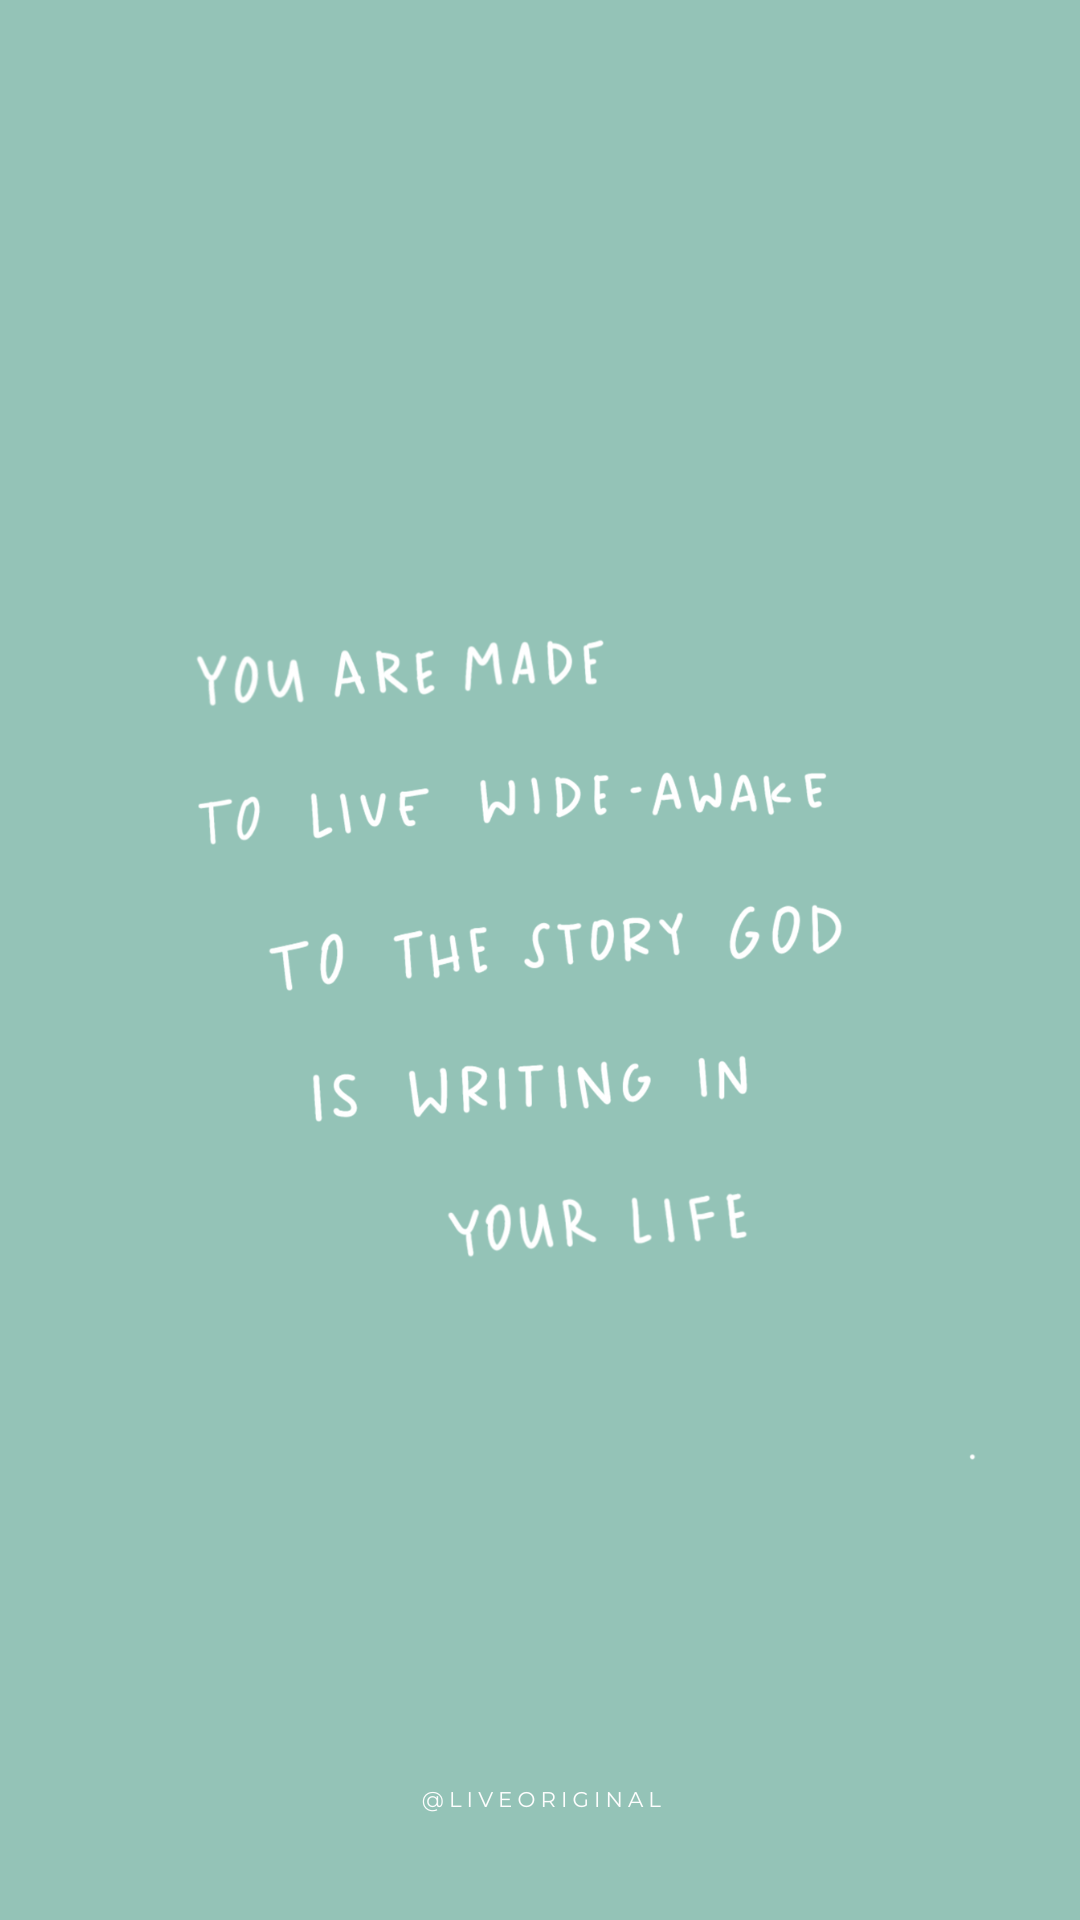 YOU ARE MADE
TO LIVE WIDE-AWAKE
TO THE STORY GOD
IS WRITING IN
YOUR LIFE
@LIVEORIGINAL